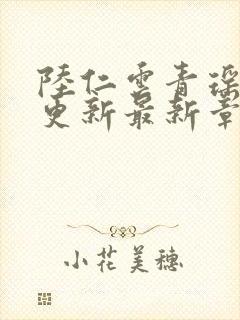 陸仁雲青瑶
更新最新章
小花美穗